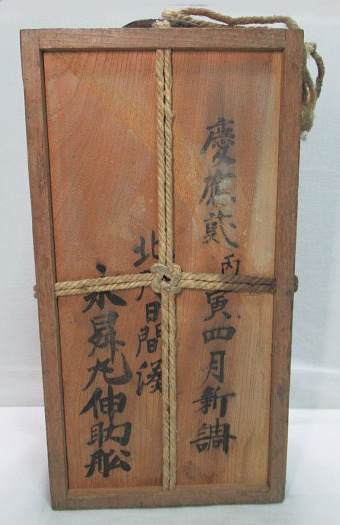 慶應貳丙寅四月新調
北戸日間湊
永昇丸伸助舩